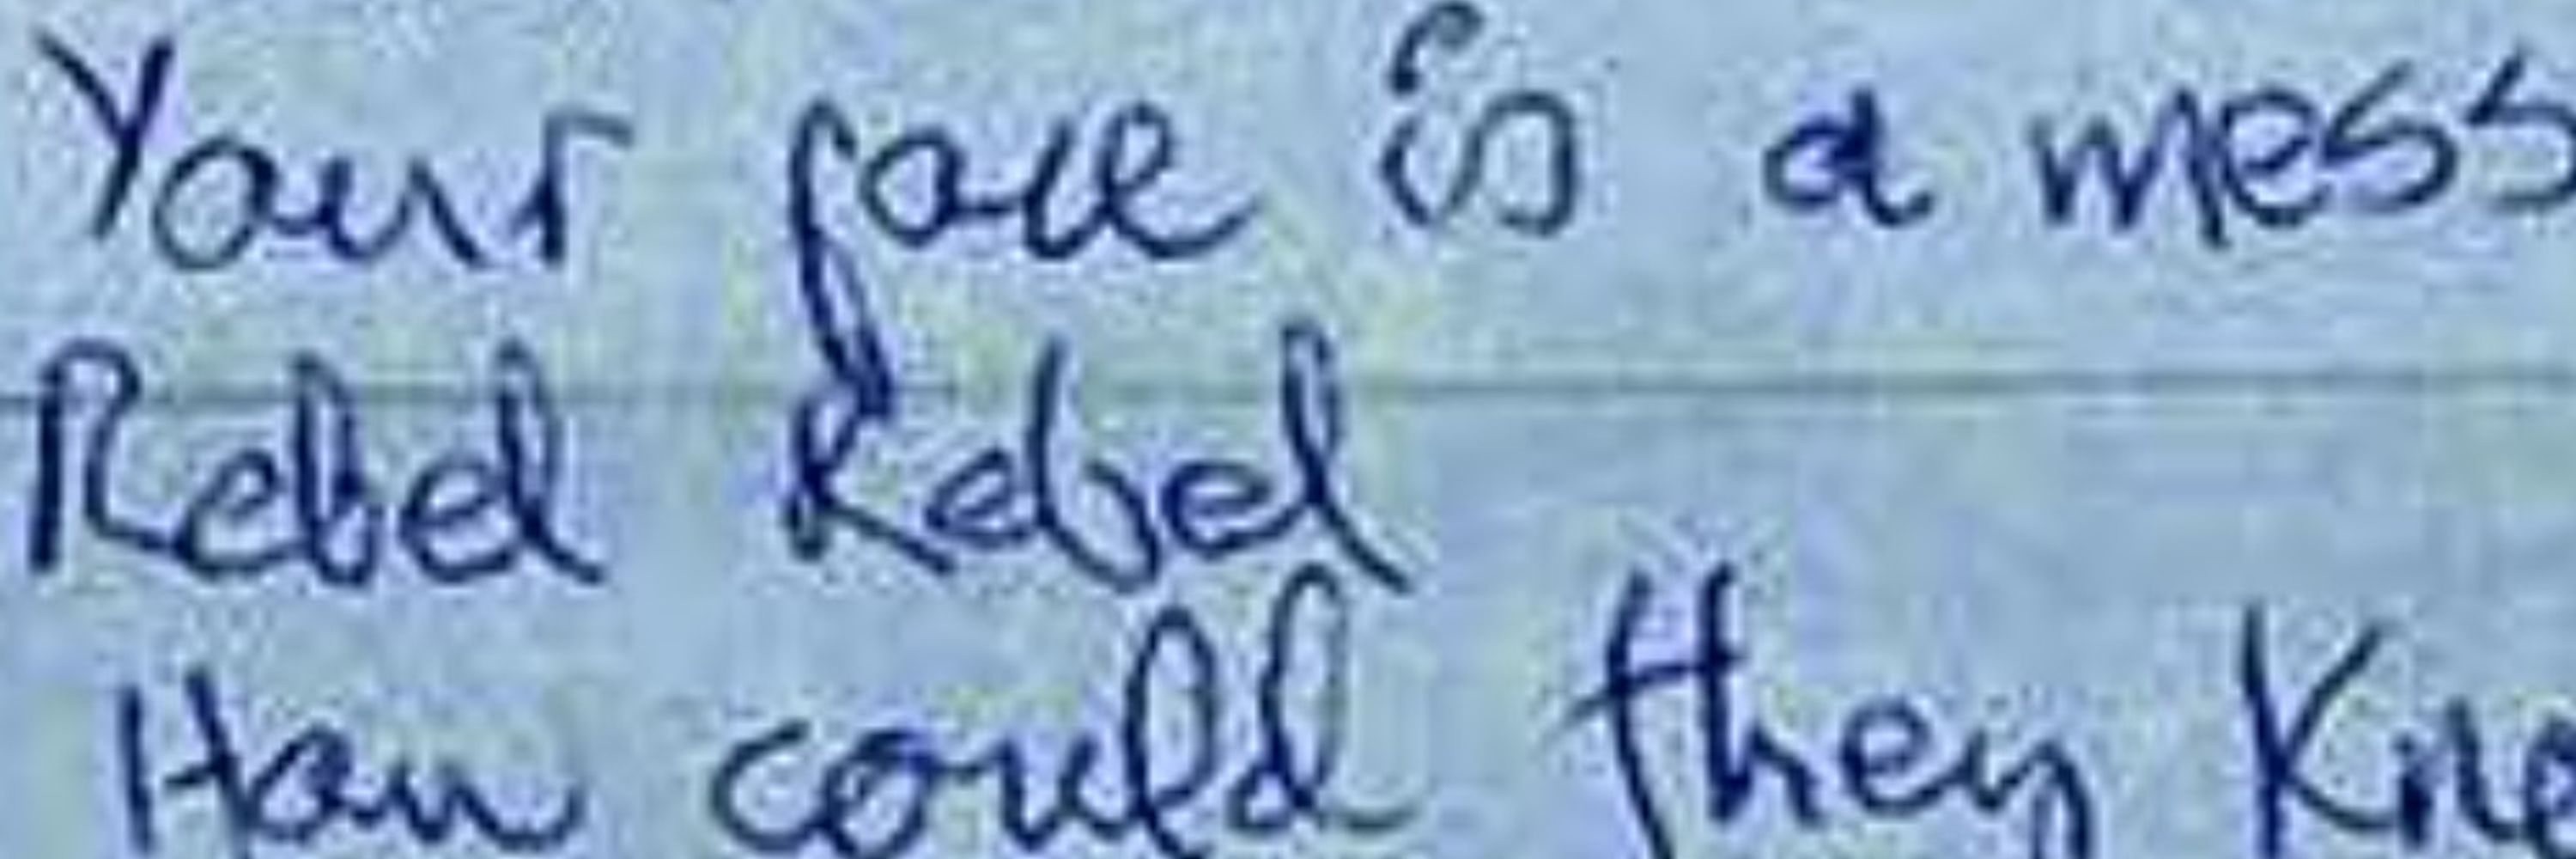 Your face is a mess
Rebel Rebel
How could they Kno